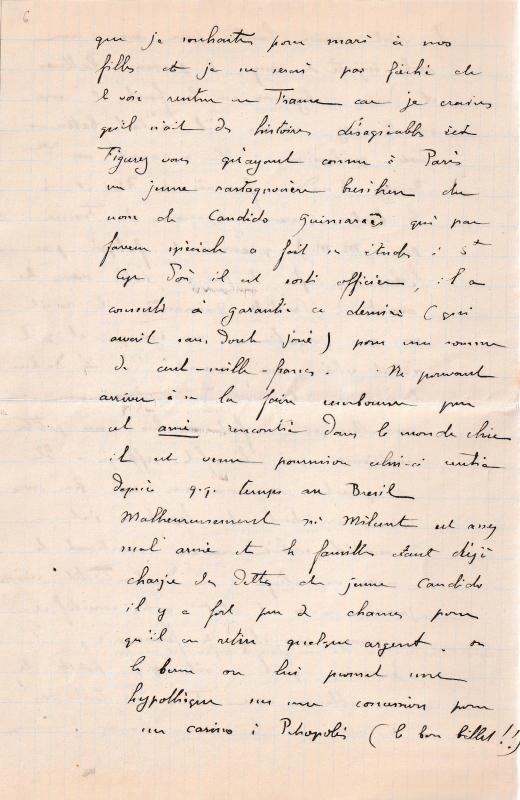 6
que je souhaite pour mari à nos
filles et je ne serais pas fâché de
le voir rentrer en France car je crains
qu'il n'ait des histoires désagréables ici
Figurez vous qu'ayant connu à Paris
un jeune rastaquouère brésilien du
nom de Candido Guimaraës qui par
faveur spéciale a fait ses études à St
Cyr d'où il est sorti officier, il a
consenti à garantir ce dernier (qui
avait sans doute joué) pour une somme
de cent-mille-francs. Ne pouvant
arriver à se la faire rembourser par
cet ami rencontré dans le monde chic
il est venu poursuivre celui-ci rentré
depuis q.q. temps au Brésil
Malheureusement Mr est assez
mal armé et la famille étant déjà
chargée des dettes du jeune Candido
il y a fort peu de chances pour
qu'il en retire quelque argent. On
le berne on lui promet une
hypothèque sur une concession pour
un casino à Petropolis (le bon billet!!)